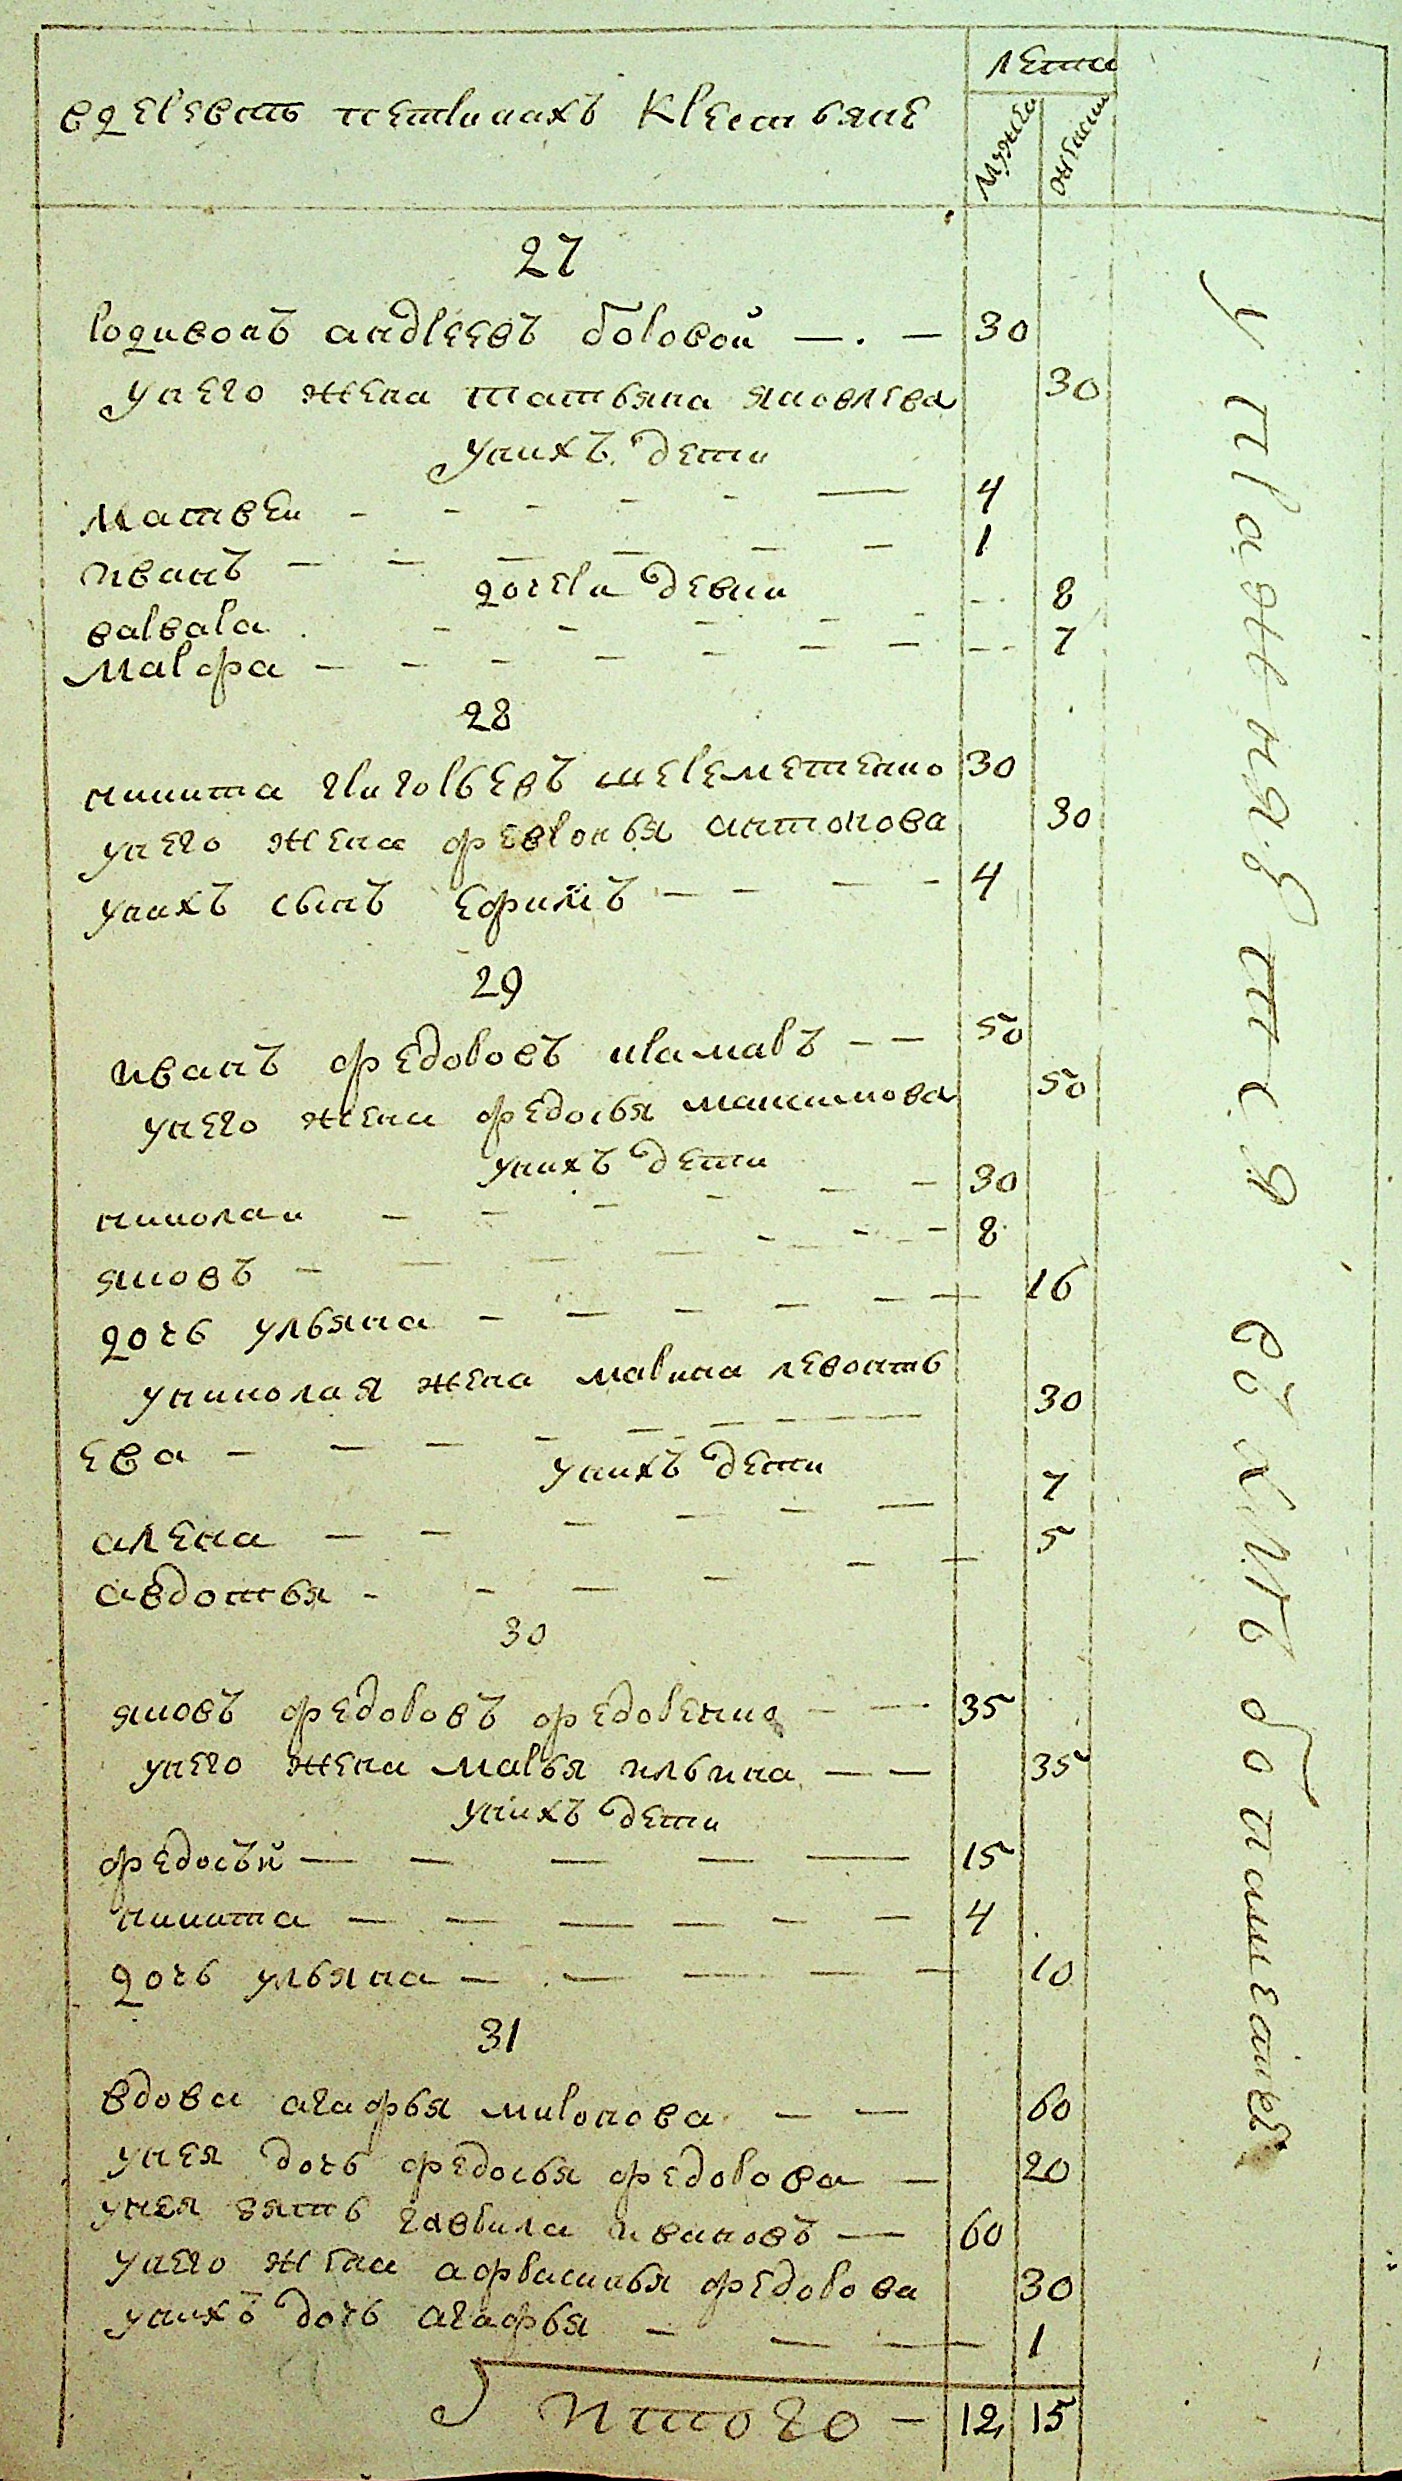 вдеревнѣ петринахъ Крестьяне
лета
мужеска
женска
27
родивонъ андреевъ боровой 30
унего жена татьяна яковлева 30
унихъ дети
матвеи 4
иванъ 1
дочери девки
варвара 8
марфа 7
28
никита григорьевъ шереметенко 30
унего жена февронья антонова 30
унихъ сынъ ефимъ 4
29
иванъ федоровъ крамаръ 50
унего жена федосья максимова 50
унихъ дети
николаи 30
яковъ 8
дочь ульяна 16
униколая жена марина леонть
ева 30
унихъ дети
алена 7
авдотья 5
30
яковъ федоровъ федоренко 35
унего жена марья ильина 35
унихъ дети
федосѣй 15
никита 4
дочь ульяна 10
31
вдова агафья миронова 60
унея дочь федосья федорова 20
унея зять гаврила ивановъ 60
унего жена афросинья федорова 30
унихъ дочь агафья 1
итого 12 15
упражняется въ хлѣбопашестве